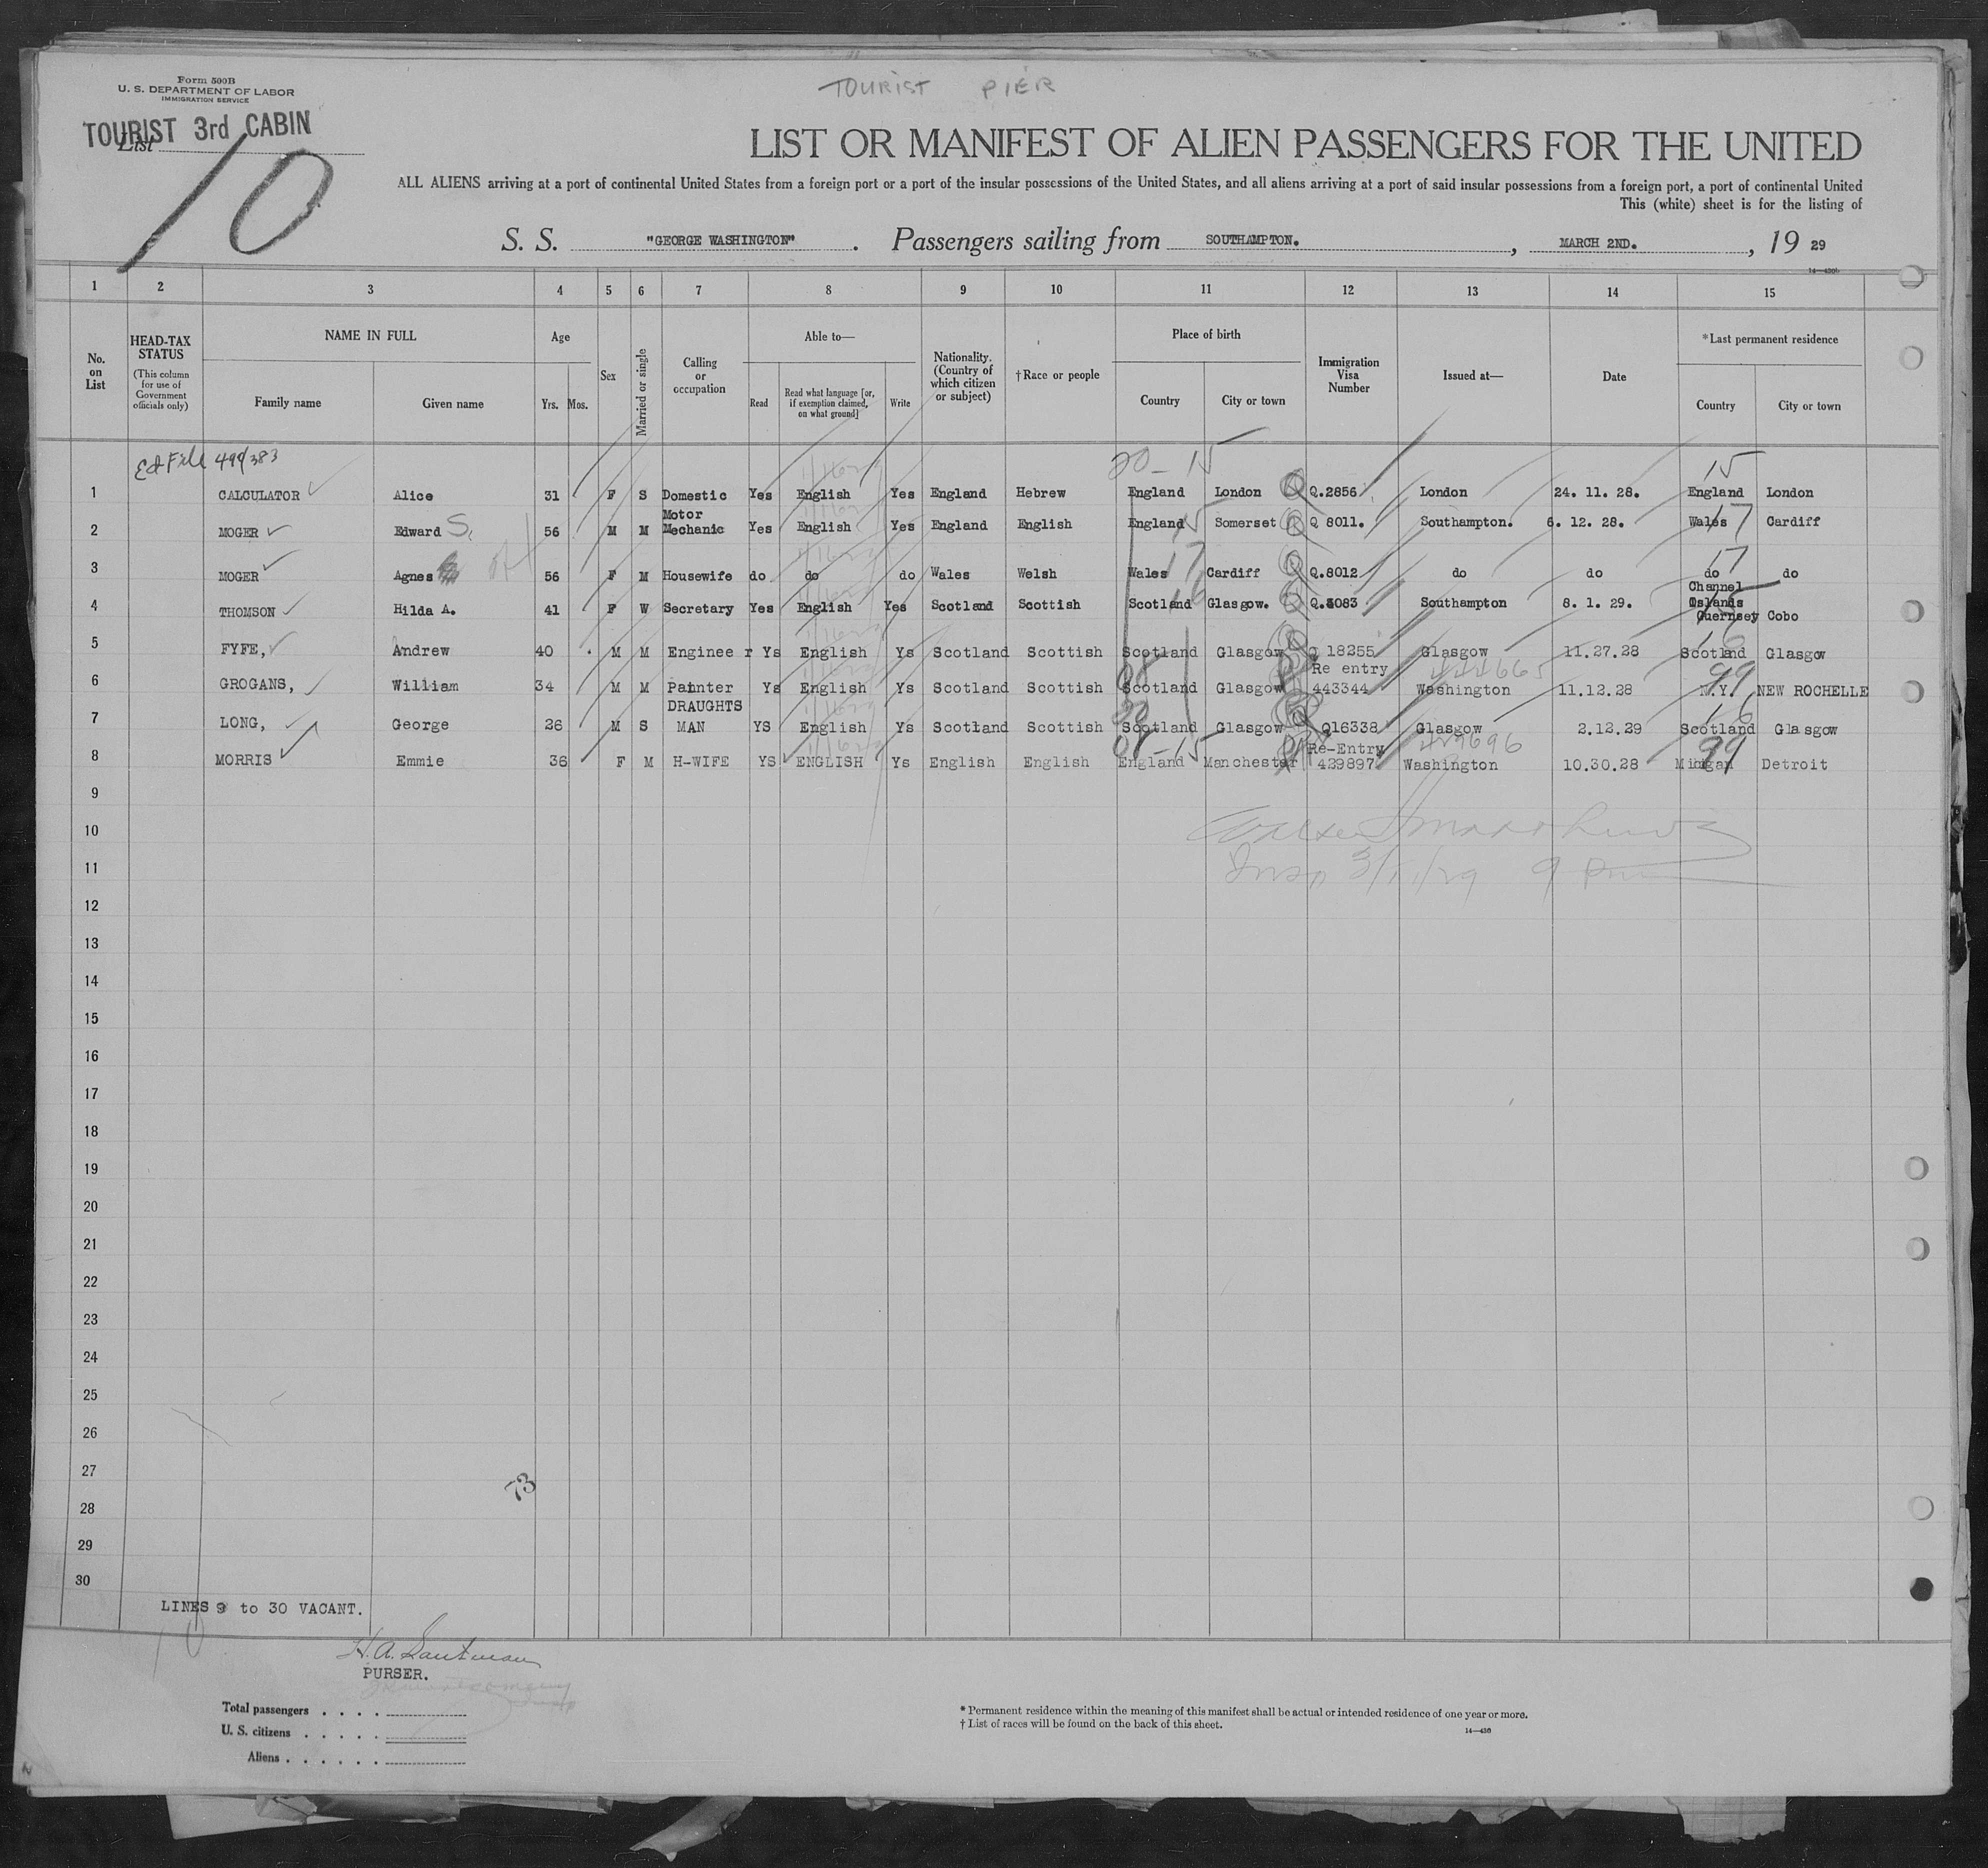 TOURIST PIER
Form 500B
U. S. DEPARTMENT OF LABOR
IMMIGRATION SERVICE
TOURIST 3rd CABIN
List
10
LIST OR MANIFEST OF ALIEN PASSENGERS FOR THE UNITED
ALL ALIENS arriving at a port of continental United States from a foreign port or a port of the insular possessions of the United States, and all aliens arriving at a port of said insular possessions from a foreign port, a port of continental United
This (white) sheet is for the listing of
S. S. "GEORGE WASHINGTON" . Passengers sailing from SOUTHAMPTON. , MARCH 2ND. , 19 29
14—430b
1 2 3 4 5 6 7 8 9 10 11 12 13 14 15
No. on List
HEAD-TAX STATUS (This column for use of Government officials only)
NAME IN FULL
Family name Given name
Age
Yrs. Mos.
Sex
Married or single
Calling or occupation
Able to—
Read
Read what language [or, if exemption claimed, on what ground]
Write
Nationality. (Country of which citizen or subject)
†Race or people
Place of birth
Country City or town
Immigration Visa Number
Issued at—
Date
*Last permanent residence
Country City or town
499/383
20-15 15
1 CALCULATOR Alice 31 F S Domestic Yes English Yes England Hebrew England London Q.2856 London 24. 11. 28. England London
2 MOGER Edward S. 56 M M Motor Mechanic Yes English Yes England English England Somerset Q 8011. Southampton. 6. 12. 28. Wales Cardiff
3 MOGER Agnes 56 F M Housewife do do do Wales Welsh Wales Cardiff Q.8012 do do do do
4 THOMSON Hilda A. 41 F W Secretary Yes English Yes Scotland Scottish Scotland Glasgow. Q.8083 Southampton 8. 1. 29. Channel Islands Guernsey Cobo
5 FYFE, Andrew 40 M M Enginee r Ys English Ys Scotland Scottish Scotland Glasgow Q 18255 Glasgow 11.27.28 Scotland Glasgow
6 GROGANS, William 34 M M Painter Ys English Ys Scotland Scottish Scotland Glasgow Re entry 443344 Washington 11.12.28 N.Y. NEW ROCHELLE
7 LONG, George 26 M S DRAUGHTS MAN YS English Ys Scotland Scottish Scotland Glasgow Q16338 Glasgow 2.12.29 Scotland Glasgow
8 MORRIS Emmie 36 F M H-WIFE YS ENGLISH Ys English English England Manchester Re-Entry 429897 Washington 10.30.28 Detroit
9
10
11
12
13
14
15
16
17
18
19
20
21
22
23
24
25
26
27
28
29
30
73
LINES 9 to 30 VACANT.
PURSER.
Total passengers
U. S. citizens
Aliens
* Permanent residence within the meaning of this manifest shall be actual or intended residence of one year or more.
† List of races will be found on the back of this sheet.
14—430